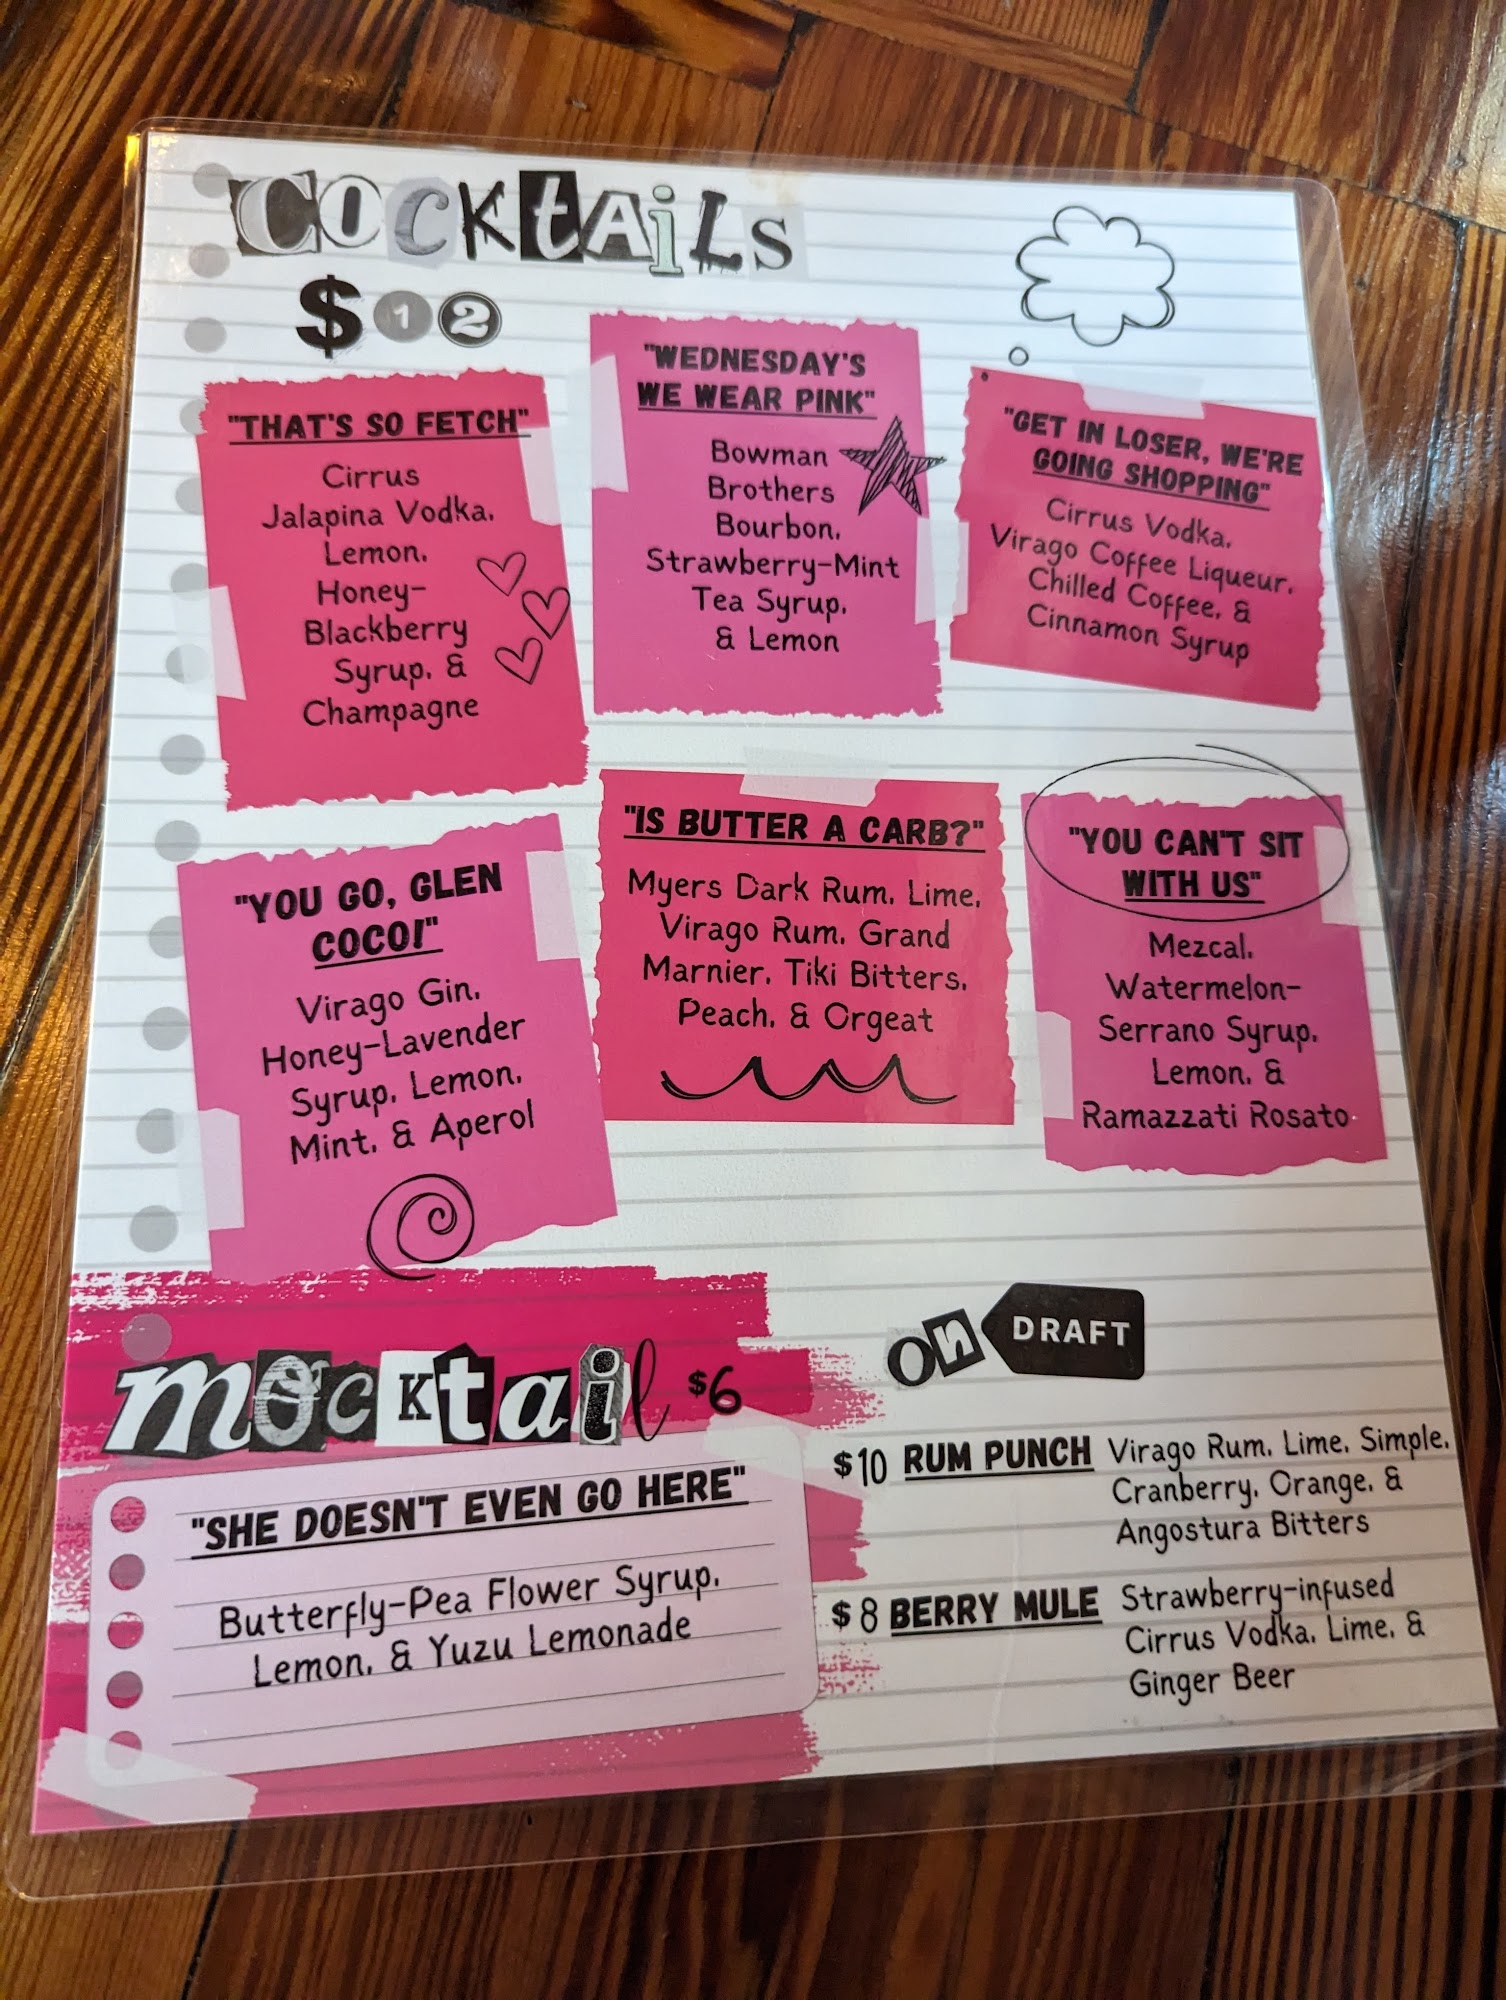 COCKtAiLS
$12
"THAT'S SO FETCH"
Cirrus
Jalapina Vodka,
Lemon,
Honey-
Blackberry
Syrup, &
Champagne
"WEDNESDAY'S
WE WEAR PINK"
Bowman
Brothers
Bourbon,
Strawberry-Mint
Tea Syrup,
& Lemon
"GET IN LOSER, WE'RE
GOING SHOPPING"
Cirrus Vodka,
Virago Coffee Liqueur,
Chilled Coffee, &
Cinnamon Syrup
"YOU GO, GLEN
COCO!"
Virago Gin,
Honey-Lavender
Syrup, Lemon,
Mint, & Aperol
"IS BUTTER A CARB?"
Myers Dark Rum, Lime,
Virago Rum, Grand
Marnier, Tiki Bitters,
Peach, & Orgeat
"YOU CAN'T SIT
WITH US"
Mezcal,
Watermelon-
Serrano Syrup,
Lemon, &
Ramazzati Rosato
mocKtail $6
"SHE DOESN'T EVEN GO HERE"
Butterfly-Pea Flower Syrup,
Lemon, & Yuzu Lemonade
on DRAFT
$10 RUM PUNCH Virago Rum, Lime, Simple,
Cranberry, Orange, &
Angostura Bitters
$8 BERRY MULE Strawberry-infused
Cirrus Vodka, Lime, &
Ginger Beer